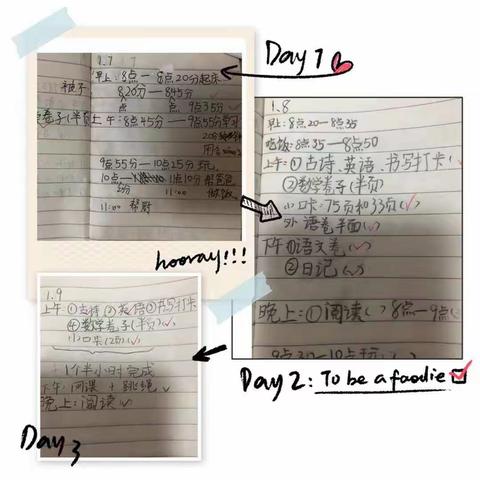 Day 1
1.7
早上:8点—8点20分起床
8.20分—8.45分
上午:8点45分—9点55分学习
9点55分—10点25分玩
11:00 帮厨
1.8
早上:8点20—8点35
吃饭:8点35—8点50
上午:①古诗、英语、书写打卡
②数学卷子(半页)
小口卡:75页和33页(✓)
外语卷半面(✓)
下午①语文卷(✓)
②日记(✓)
晚上:①阅读( )8点—9点
9点30—10点玩
hooray!!!
Day 2: To be a foodie
1.9
上午①古诗②英语③书写打卡
④数学卷子(半页)✓
1个半小时完成
下午:网课+跳绳✓
晚上:阅读✓
Day 3